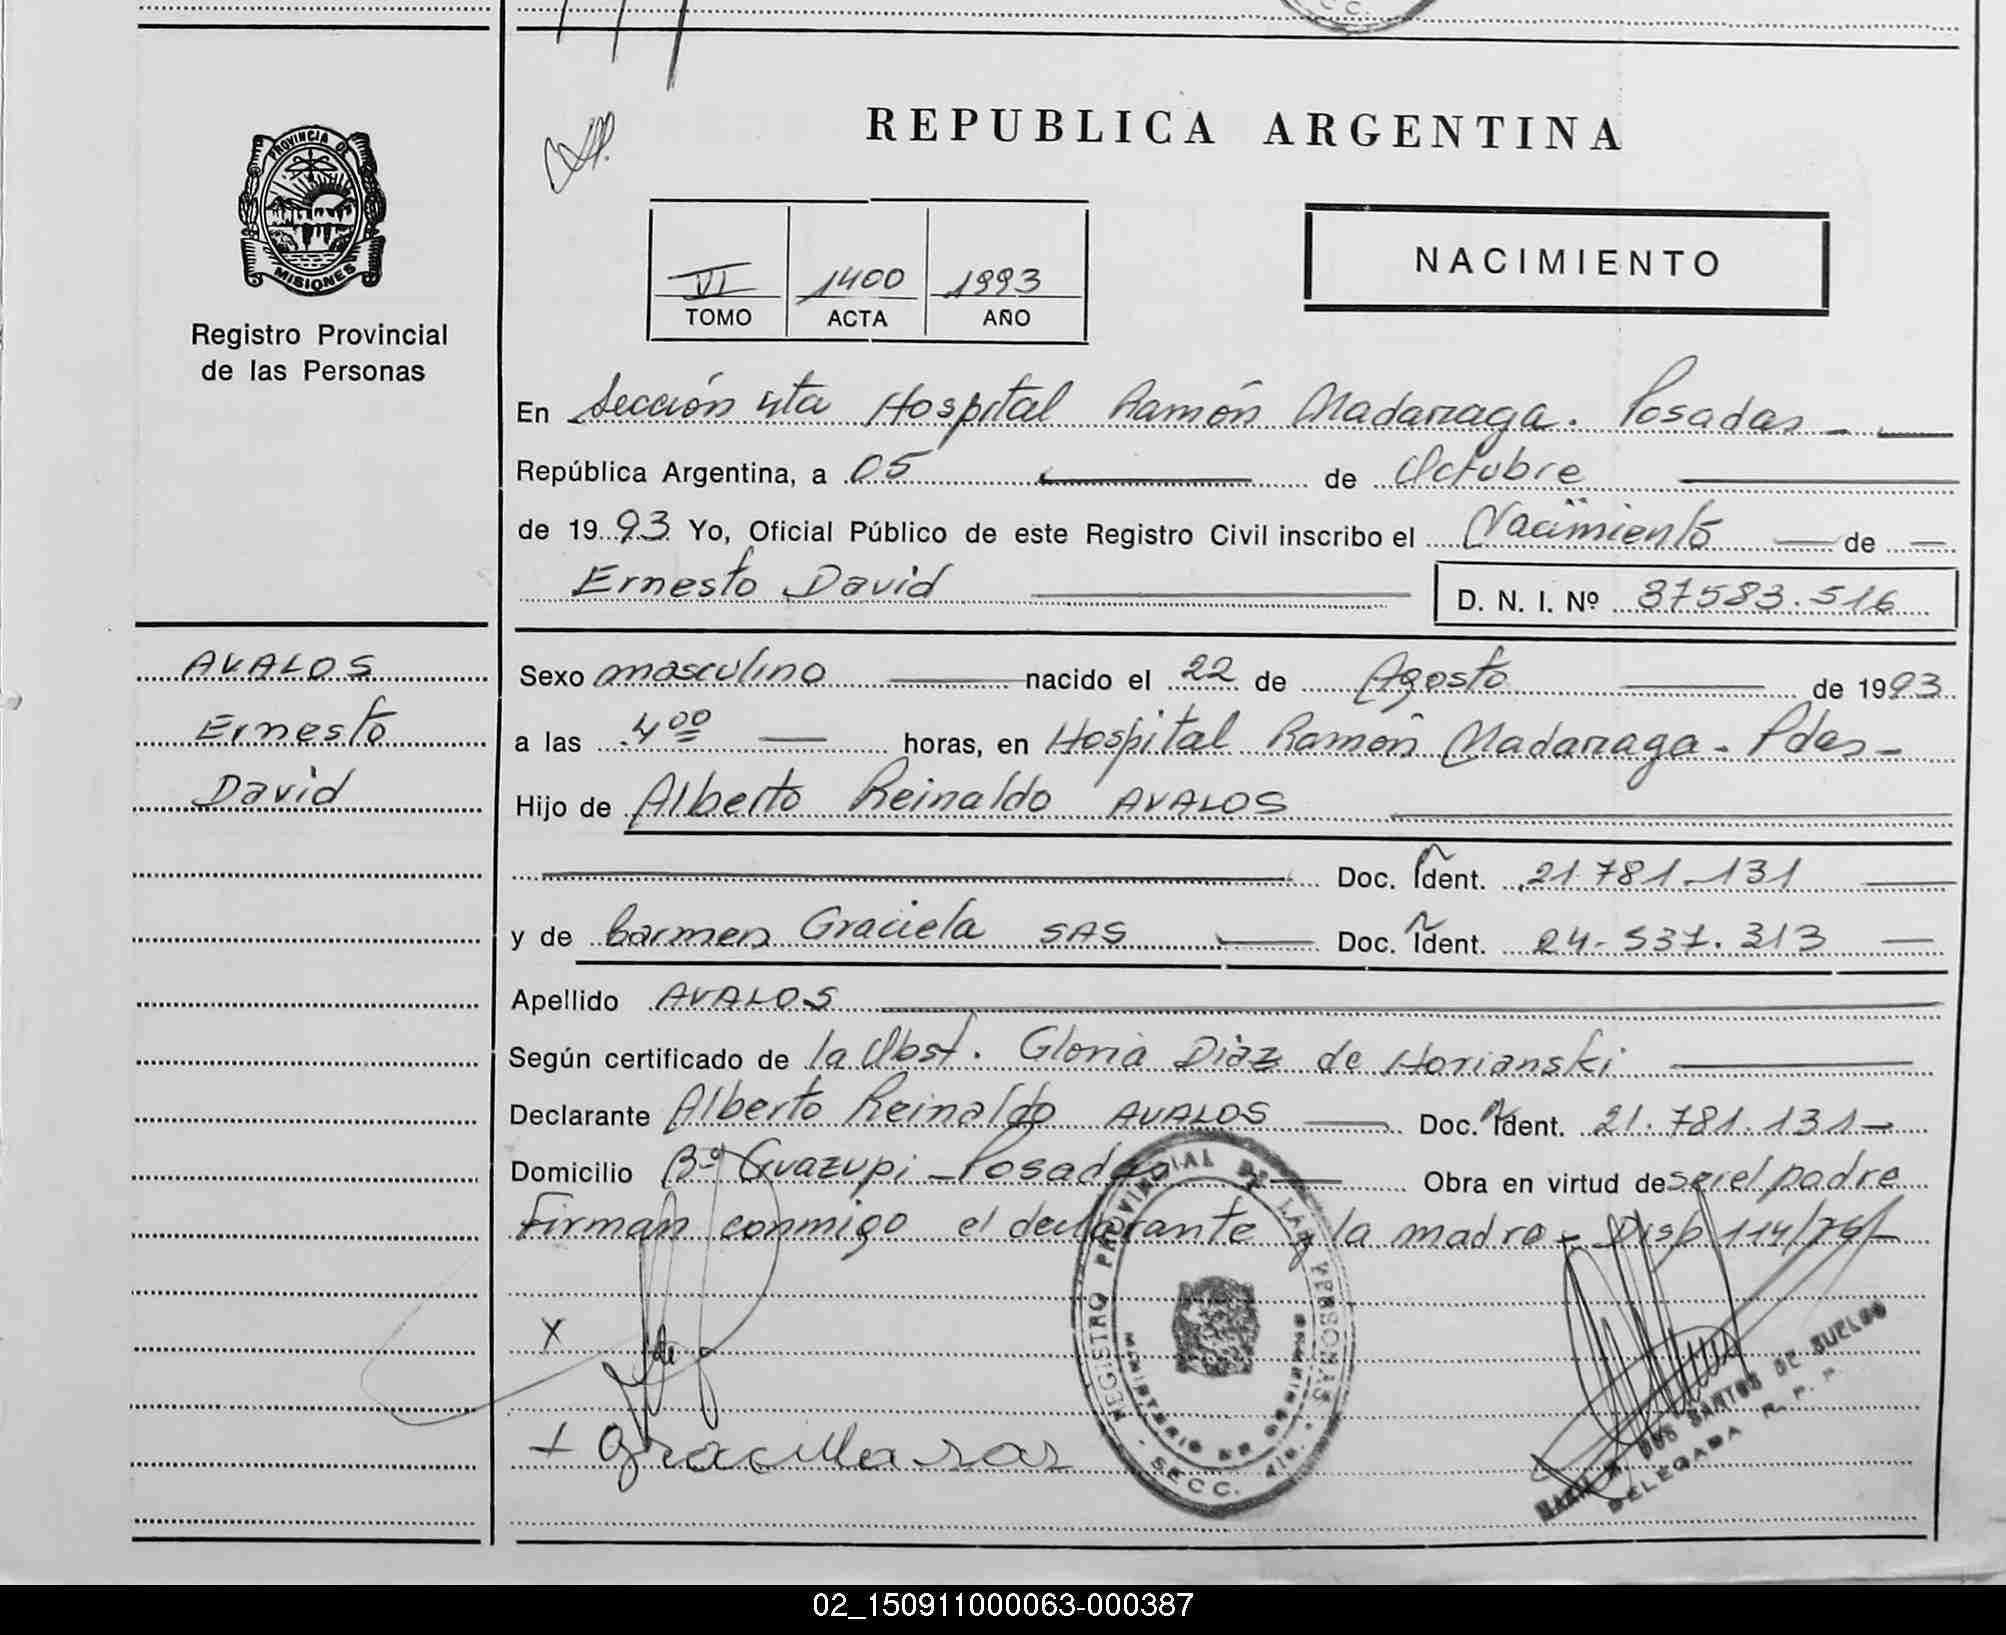 REPUBLICA ARGENTINA
PROVINCIA DE
MISIONES
Registro Provincial
de las Personas
VI 1400 1993
TOMO ACTA AÑO
NACIMIENTO
En Sección 4ta Hospital Ramón Madariaga. Posadas
República Argentina, a 05 de Octubre
de 1993 Yo, Oficial Público de este Registro Civil inscribo el Nacimiento de
Ernesto David D. N. I. Nº 37583.516
AVALOS
Ernesto
David
Sexo masculino nacido el 22 de Agosto de 1993
a las 4 00 horas, en Hospital Ramón Madariaga - Pdas -
Hijo de Alberto Reinaldo AVALOS
Doc. Ident. 21.781.131
y de Carmen Graciela SAS Doc. Ident. 24.537.313
Apellido AVALOS
Según certificado de la Obst. Gloria Diaz de Horianski
Declarante Alberto Reinaldo AVALOS Doc. Ident. 21.781.131-
Domicilio Bº Guazupi - Posadas Obra en virtud de ser el padre
Firman conmigo el declarante y la madre - Disp 114/76/-
X
+ Graciela sas
REGISTRO PROVINCIAL DE LAS PERSONAS
MINISTERIO DE GOBIERNO
SECC. 4ta.
DOS SANTOS DE SUELDO
DELEGADA R. P. P.
02_150911000063-000387